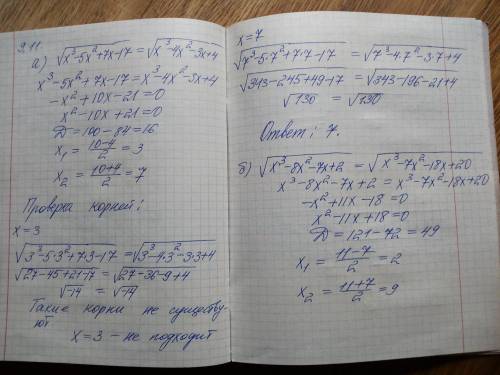 9.11
а) √(x³-5x²+7x-17) = √(x³-4x²-3x+4)
x³-5x²+7x-17 = x³-4x²-3x+4
-x²+10x-21=0
x²-10x+21=0
D=100-84=16
x₁ = (10-4)/2 = 3
x₂ = (10+4)/2 = 7
Проверка корней:
x=3
√(3³-5·3²+7·3-17) = √(3³-4·3²-3·3+4)
√(27-45+21-17) = √(27-36-9+4)
√-14 = √-14
Такие корни не существу-
ют
x=3 - не подходит
x=7
√(7³-5·7²+7·7-17) = √(7³-4·7²-3·7+4)
√(343-245+49-17) = √(343-196-21+4)
√130 = √130
Ответ: 7.
б) √(x³-8x²-7x+2) = √(x³-7x²-18x+20)
x³-8x²-7x+2 = x³-7x²-18x+20
-x²+11x-18=0
x²-11x+18=0
D=121-72=49
x₁ = (11-7)/2 = 2
x₂ = (11+7)/2 = 9